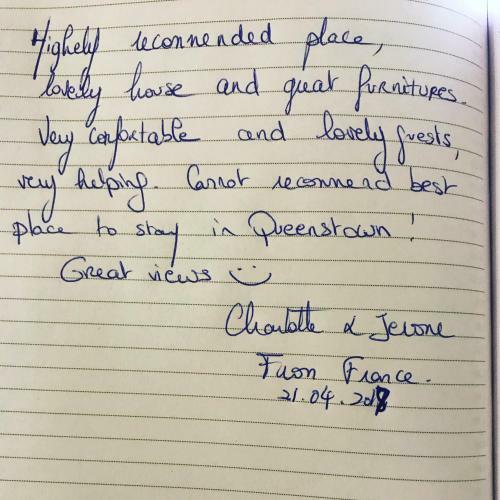 Highely recommended place,
lovelly house and great furnitures.
Very confortable and lovely guests,
very helping. Cannot recommend best
place to stay in Queenstown!
Great views :)
Charlotte & Jerome
From France.
21.04.2018